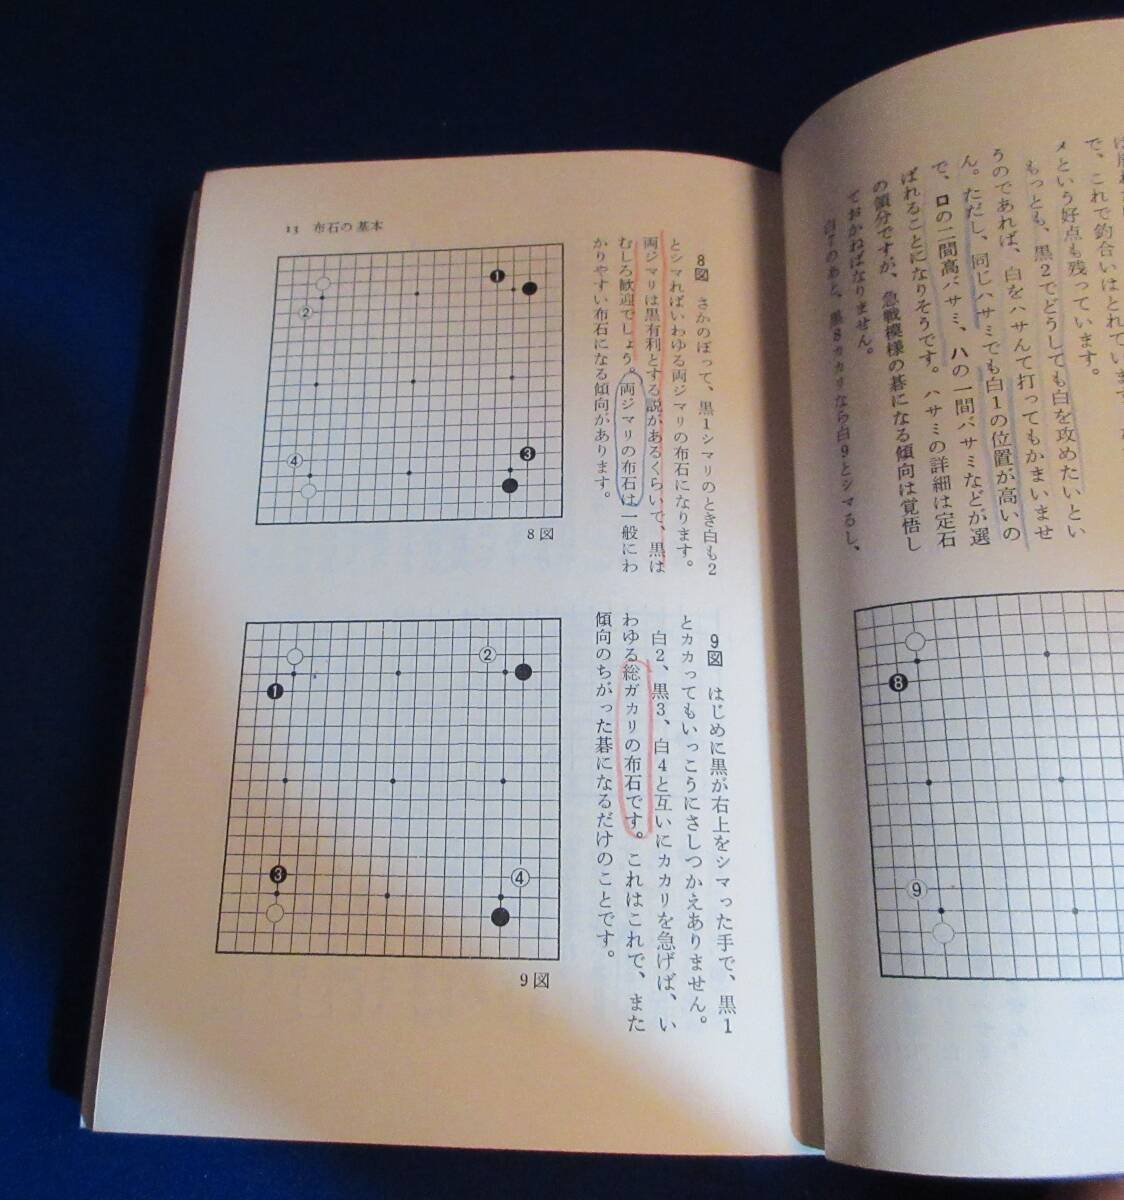 で、これで釣合いはとれています
メという好点も残っています。
もっとも、黒2でどうしても白を攻めたいとい
うのであれば、白をハサんで打ってもかまいませ
ん。ただし、同じハサミでも白1の位置が高いの
で、ロの二間高バサミ、ハの一間バサミなどが選
ばれることになりそうです。ハサミの詳細は定石
の領分ですが、急戦模様の碁になる傾向は覚悟し
ておかねばなりません。
白7のあと、黒8カカリなら白9とシマるし、
8
9
13 布石の基本
8図 さかのぼって、黒1シマリのとき白も2
とシマればいわゆる両ジマリの布石になります。
両ジマリは黒有利とする説があるくらいで、黒は
むしろ歓迎でしょう。両ジマリの布石は一般にわ
かりやすい布石になる傾向があります。
1
2
3
4
8図
9図 はじめに黒が右上をシマった手で、黒1
とカカってもいっこうにさしつかえありません。
白2、黒3、白4と互いにカカリを急げば、い
わゆる総ガカリの布石です。これはこれで、また
傾向のちがった碁になるだけのことです。
2
1
3
4
9図